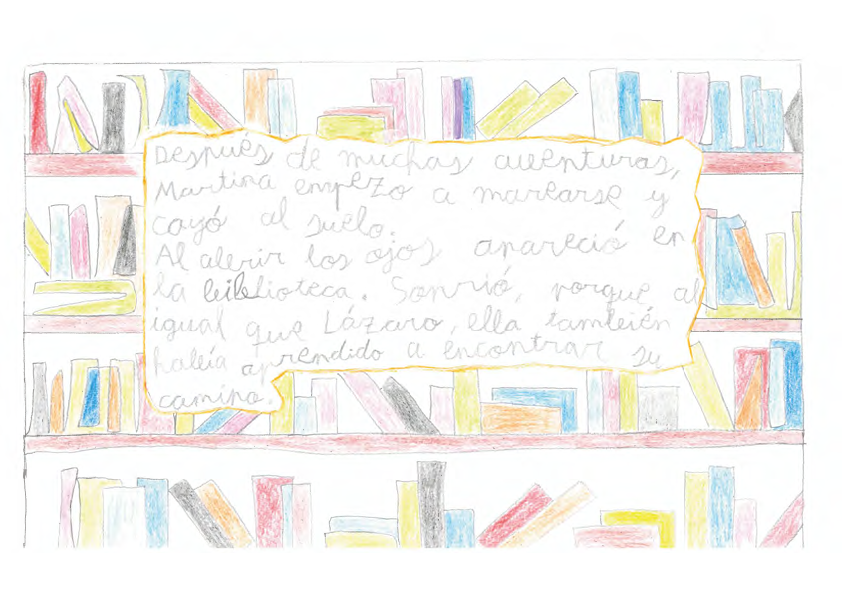 Después de muchas aventuras,
Martina empezo a marearse y
cayó al suelo.
Al abrir los ojos apareció en
la biblioteca. Sonrió, porque al
igual que Lázaro, ella también
había aprendido a encontrar su
camino.